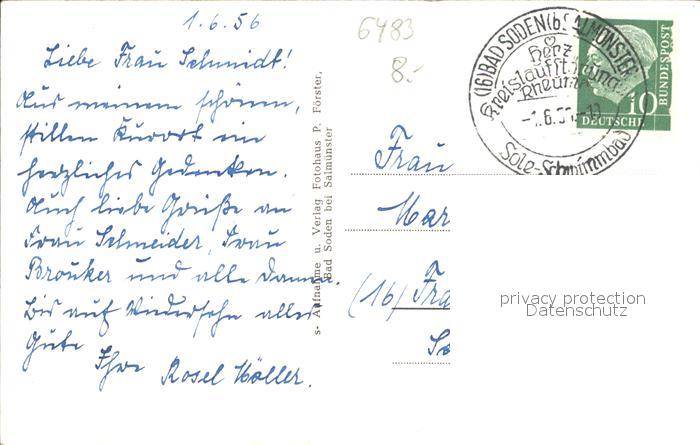 1.6.56
Liebe Frau Schmidt!
Aus meinem schönen,
stillen Kurort ein
herzliches Gedenken.
Auch liebe Grüße an
Frau Schneider, Frau
Brouker und alle Damen.
Bis auf Wiedersehn alles
Gute
Ihre Rosel Möller.
s- Aufnahme u. Verlag Fotohaus P. Förster,
Bad Soden bei Salmünster
6483
8.-
(16) BAD SODEN (b SALMÜNSTER
Herz
Kreislaufstörungen
Rheuma
-1.6.56
Sole-Schwimmbad
10
DEUTSCHE
BUNDESPOST
Frau
Mar
(16) Fra
privacy protection
Datenschutz